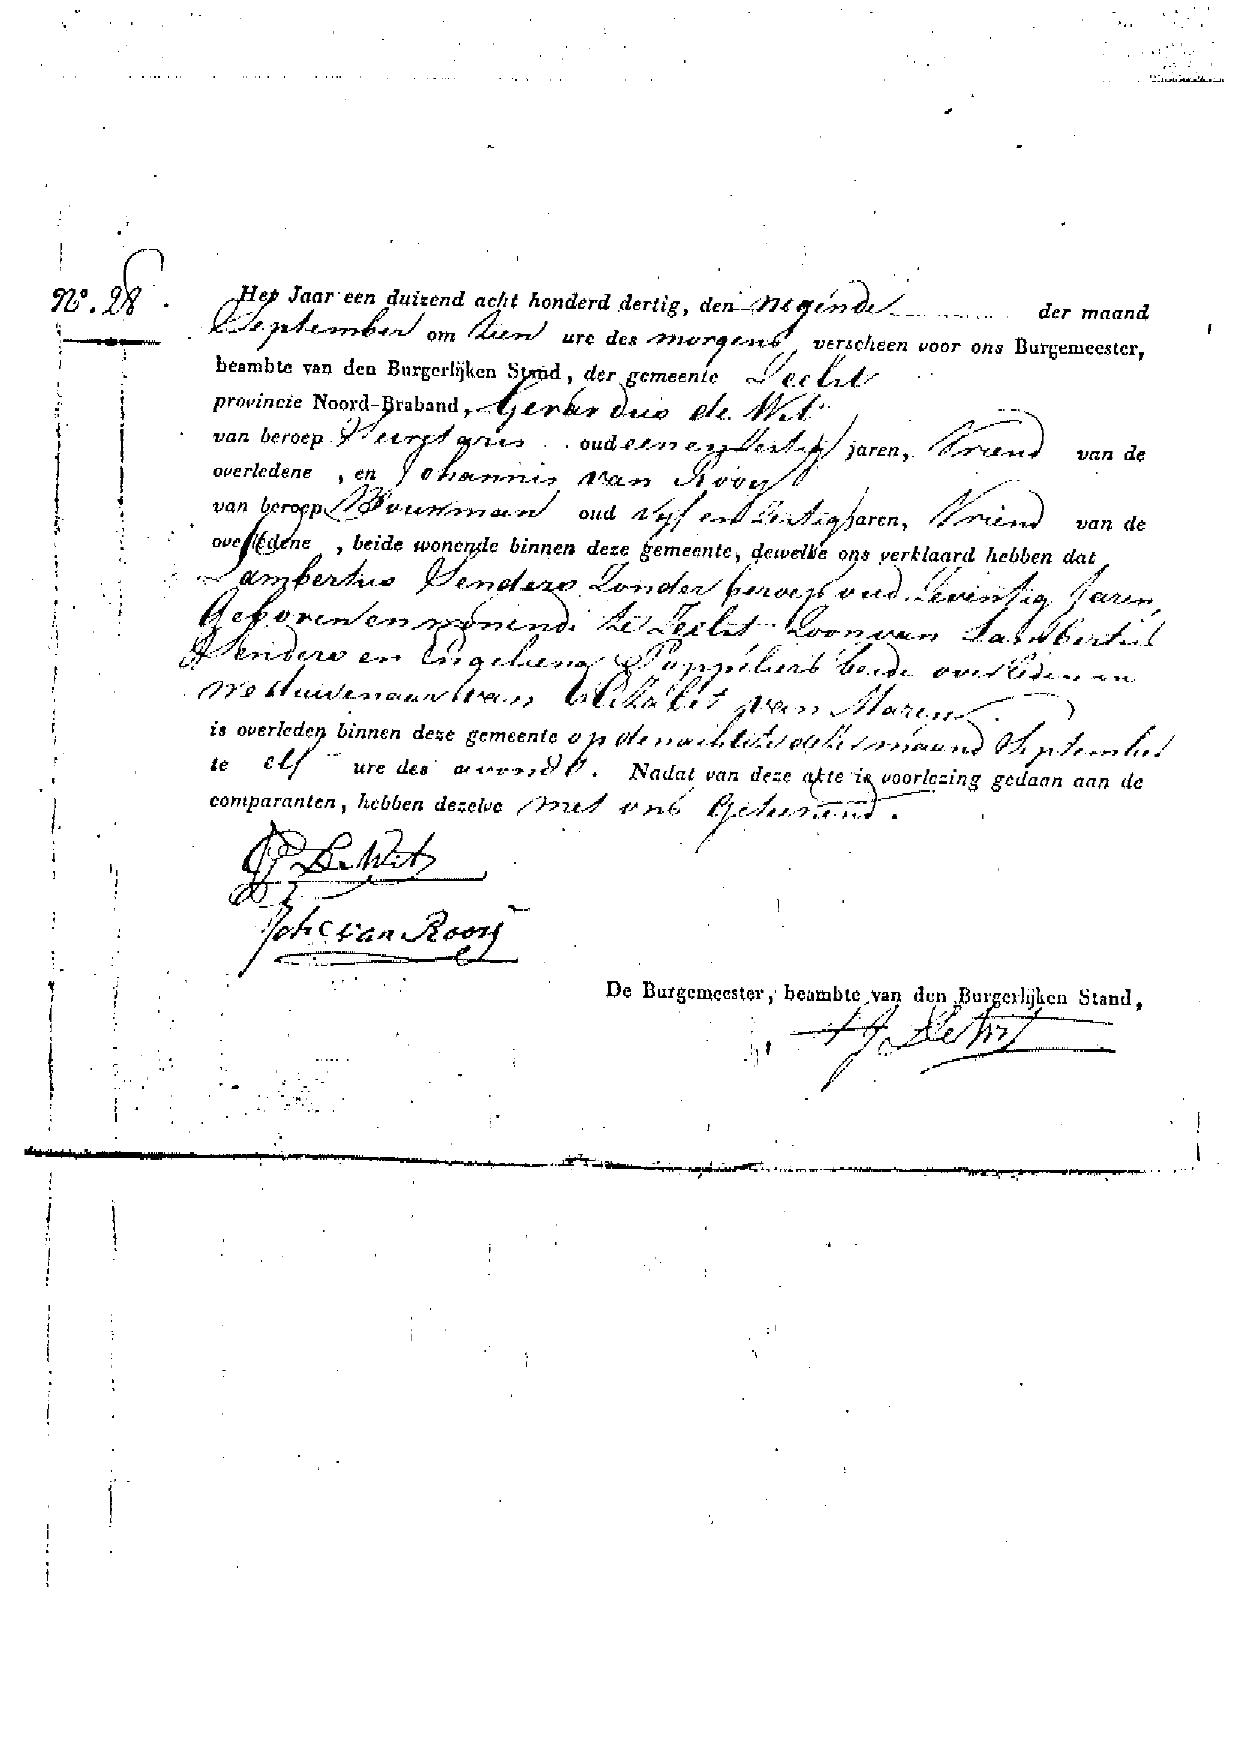 N°. 28.
Het Jaar een duizend acht honderd dertig, den negende der maand
September om tien ure des morgens verscheen voor ons Burgemeester,
beambte van den Burgerlijken Stand, der gemeente Heeselt
provincie Noord-Braband, Gerardus de Wit
van beroep oud een en dertig jaren, Vriend van de
overledene, en Johannis van Rooy
van beroep Bouwman oud vijf en dertig jaren, Vriend van de
overledene, beide wonende binnen deze gemeente, dewelke ons verklaard hebben dat
Lambertus Senders Zonder beroep oud Seventig Jaren,
Geboren en wonende te Zoon van Lambertus
Senders en Ingeliena Poppeliers beide overleden en
Weduwenaar van Elisabet van Maren
is overleden binnen deze gemeente op den achtste dezer maand September
te elf ure des avonds. Nadat van deze akte is voorlezing gedaan aan de
comparanten, hebben dezelve met ons Getekend.
G De Wit
Johs van Rooij
De Burgemeester, beambte van den Burgerlijken Stand,
De Wit